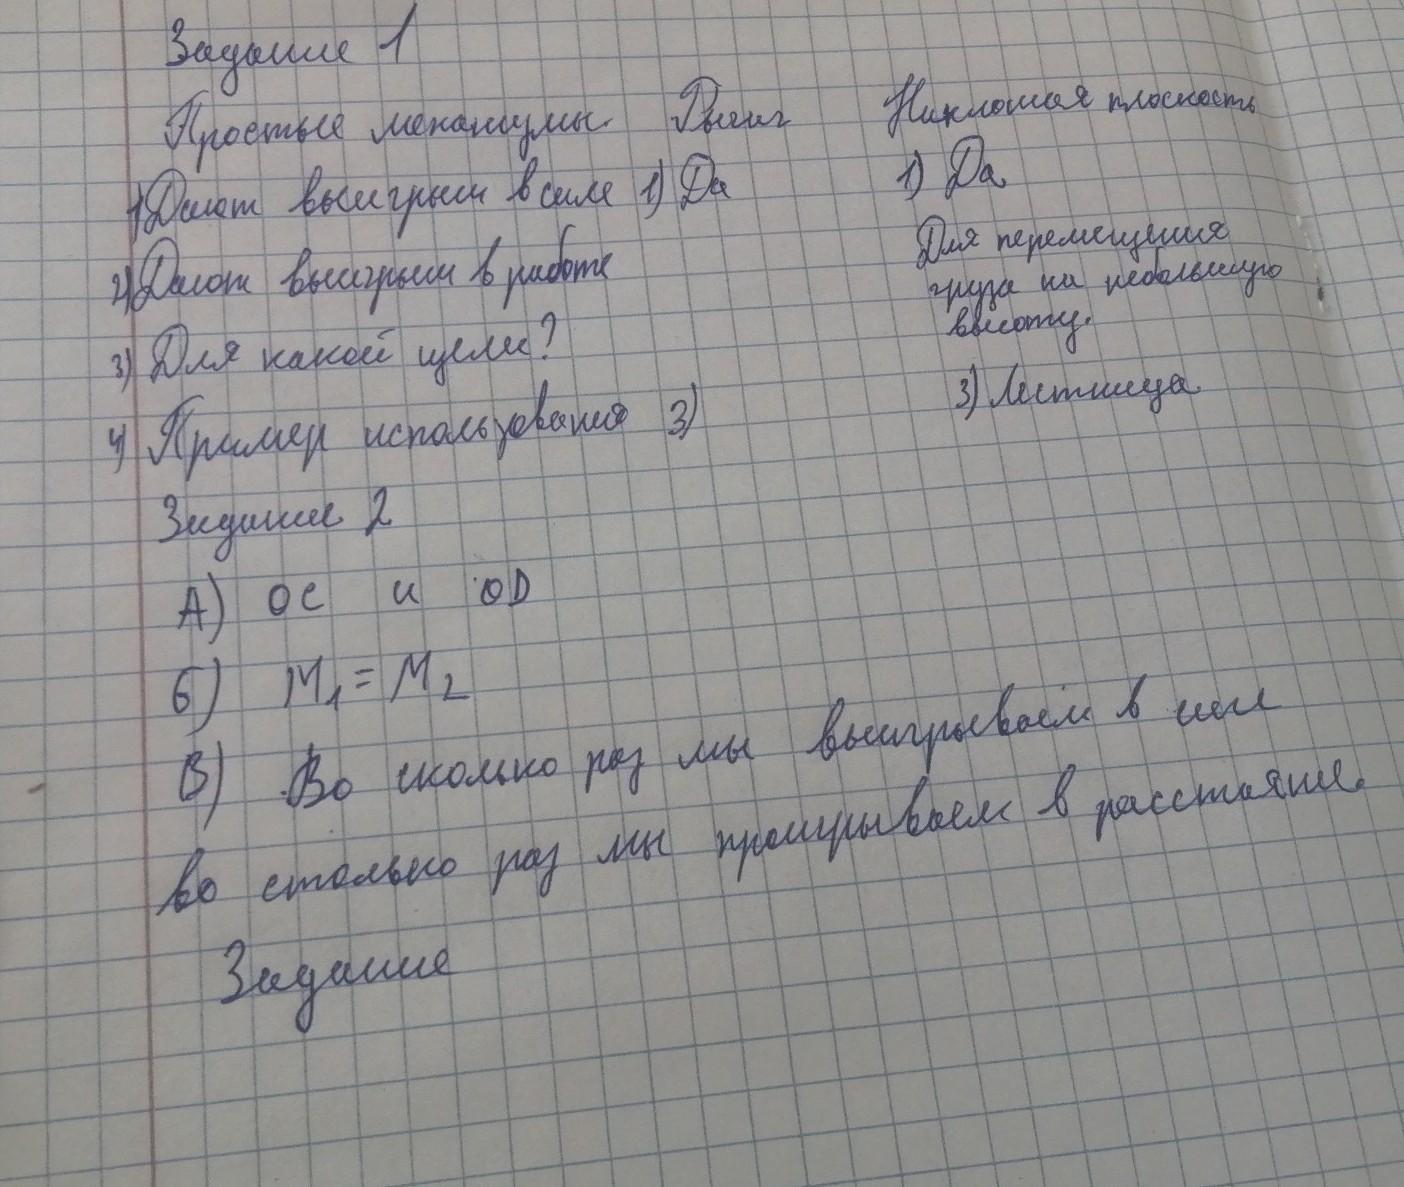 Задание 1
Простые механизмы. Рычаг Наклонная плоскость
1) Дают выигрыш в силе 1) Да 1) Да
2) Дают выигрыш в работе Для перемещения
груза на небольшую
высоту.
3) Для какой цели?
4) Пример использования 3) 3) Лестница
Задание 2
А) ОС и OD
б) M₁ = M₂
В) Во сколько раз мы выигрываем в силе
во столько раз мы проигрываем в расстояние.
Задание